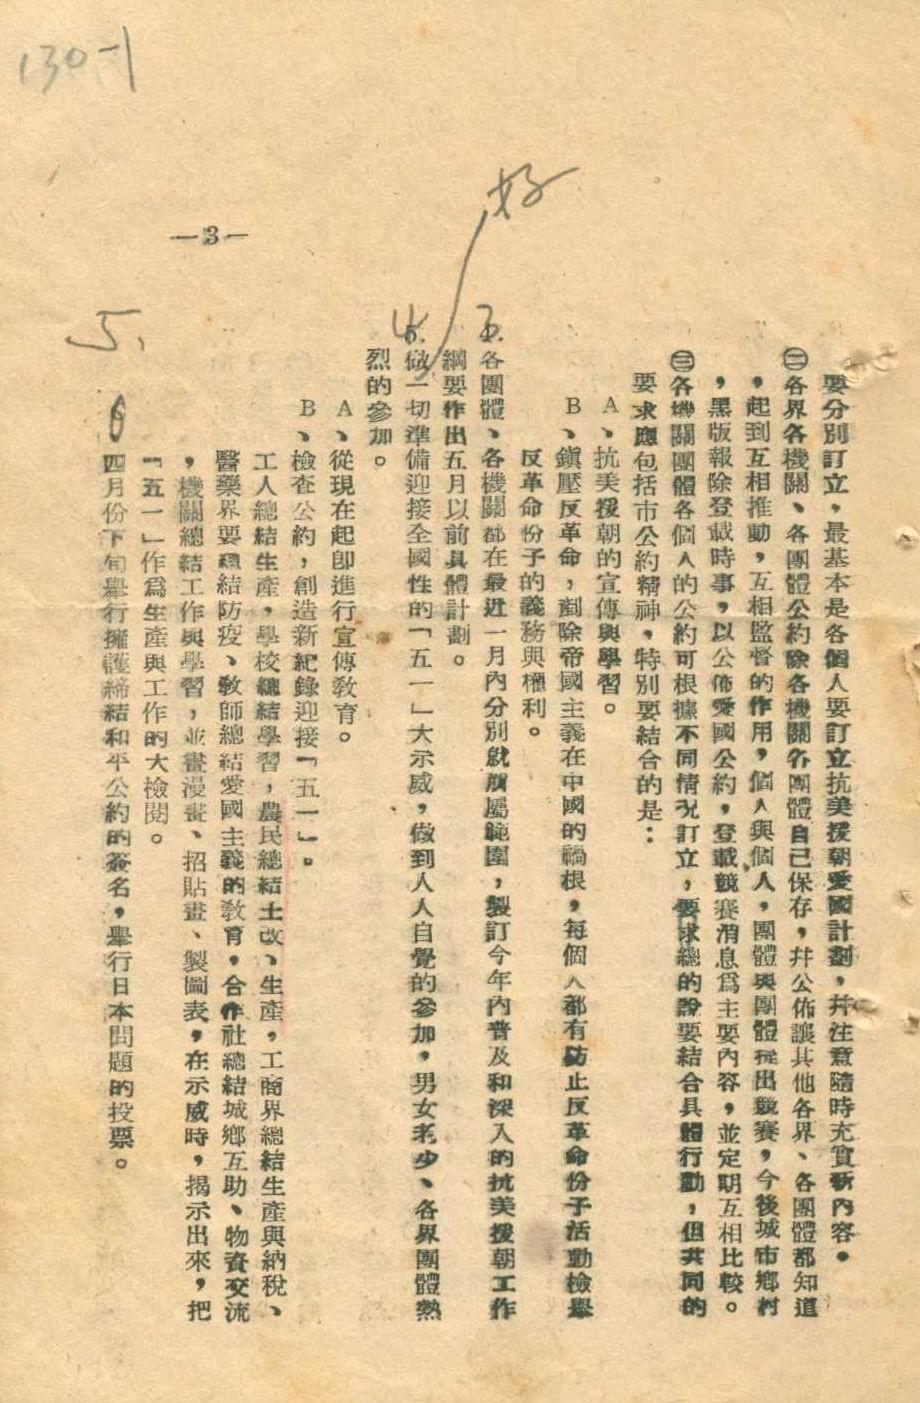 130-1
好
—3—
要分別訂立，最基本是各個人要訂立抗美援朝愛國計劃，并注意隨時充實新內容。
㊁各界各機關、各團體公約除各機關各團體自己保存，幷公佈讓其他各界、各團體都知道
，起到互相推動，互相監督的作用，個人與個人，團體與團體提出競賽，今後城市鄉村
，黑版報除登載時事，以公佈愛國公約，登載競賽消息爲主要內容，並定期互相比較。
㊂各機關團體各個人的公約可根據不同情況訂立，要求總的說要結合具體行動，但共同的
要求應包括市公約精神，特別要結合的是：
A、抗美援朝的宣傳與學習。
B、鎭壓反革命，剷除帝國主義在中國的禍根，每個人都有防止反革命份子活動檢舉
反革命份子的義務與權利。
各團體、各機關都在最近一月內分別就所屬範圍，製訂今年內普及和深入的抗美援朝工作
綱要作出五月以前具體計劃。
4 5.做一切準備迎接全國性的「五一」大示威，做到人人自覺的參加，男女老少、各界團體熱
烈的參加。
A、從現在起卽進行宣傳敎育。
B、檢查公約，創造新紀錄迎接「五一」。
工人總結生產，學校總結學習，農民總結土改、生產，工商界總結生產與納稅、
醫藥界要總結防疫、敎師總結愛國主義的敎育，合作社總結城鄉互助、物資交流
，機關總結工作與學習，並畫漫畫、招貼畫、製圖表，在示威時，揭示出來，把
「五一」作爲生產與工作的大檢閱。
5. 6四月份下旬舉行擁護締結和平公約的簽名，舉行日本問題的投票。